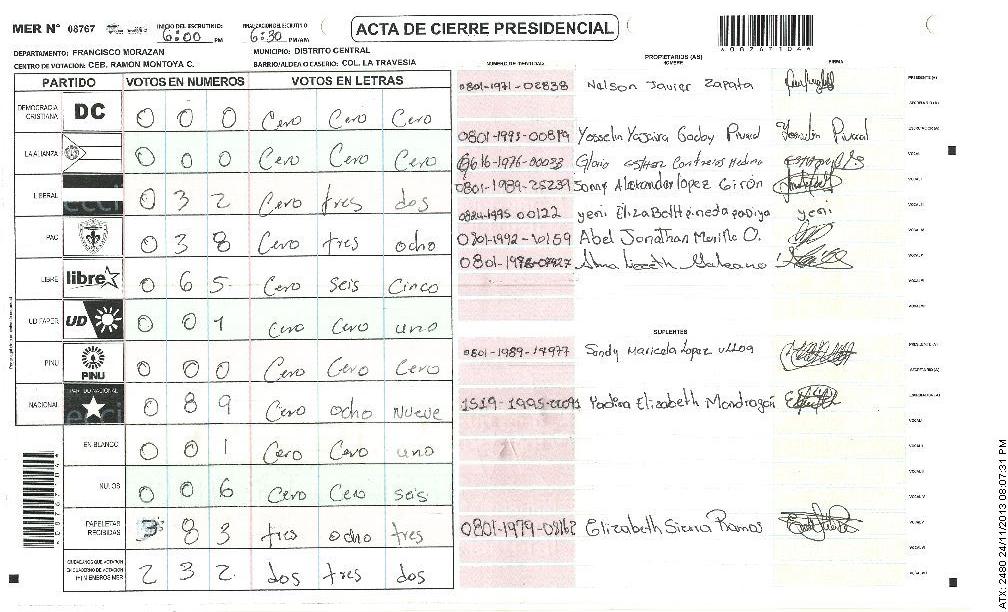 MER N° 08767 INICIO DEL ESCRUTINIO: 6:00 PM FINALIZACION DEL ESCRUTINIO 6:30 PM/AM ACTA DE CIERRE PRESIDENCIAL
DEPARTAMENTO: FRANCISCO MORAZAN MUNICIPIO: DISTRITO CENTRAL
CENTRO DE VOTACION: CEB. RAMON MONTOYA C. BARRIO/ALDEA O CASERIO: COL. LA TRAVESIA
PARTIDO VOTOS EN NUMEROS VOTOS EN LETRAS
DEMOCRACIA CRISTIANA DC 0 0 0 Cero Cero Cero
LA ALIANZA 0 0 0 Cero Cero Cero
LIBERAL 0 3 2 Cero tres dos
PAC 0 3 8 Cero tres ocho
LIBRE libre 0 6 5 Cero seis Cinco
UD FAPER UD 0 0 1 Cero Cero uno
PINU PINU 0 0 0 Cero Cero Cero
NACIONAL PARTIDO NACIONAL 0 8 9 Cero ocho Nueve
EN BLANCO 0 0 1 Cero Cero uno
NULOS 0 0 6 Cero Cero seis
PAPELETAS RECIBIDAS 3 8 3 tres ocho tres
CIUDADANOS QUE VOTARON EN CUADERNO DE VOTACION (+) MIEMBROS MER 2 3 2 dos tres dos
NUMERO DE IDENTIDAD PROPIETARIOS (AS) NOMBRE FIRMA
0801-1971-02838 Nelson Javier Zapata
0801-1993-00819 Yosselin Yajaira Godoy
0616-1976-00023 Gloria Esther Contreras Medina
0801-1989-25239 Sonny Alexander Lopez Girón
1995 00122 yeni ElizaBeth pineda yeni
0801-1992-10159 Abel Jonathan Murillo O.
0801
SUPLENTES
0801-1989-14977 Sandy Maricela Lopez ulloa
1519-1995 Elizabeth Mondragón
0801-1979-08162 Elizabeth Sierra Ramos
ATX: 2480 24/11/2013 08:07:31 PM